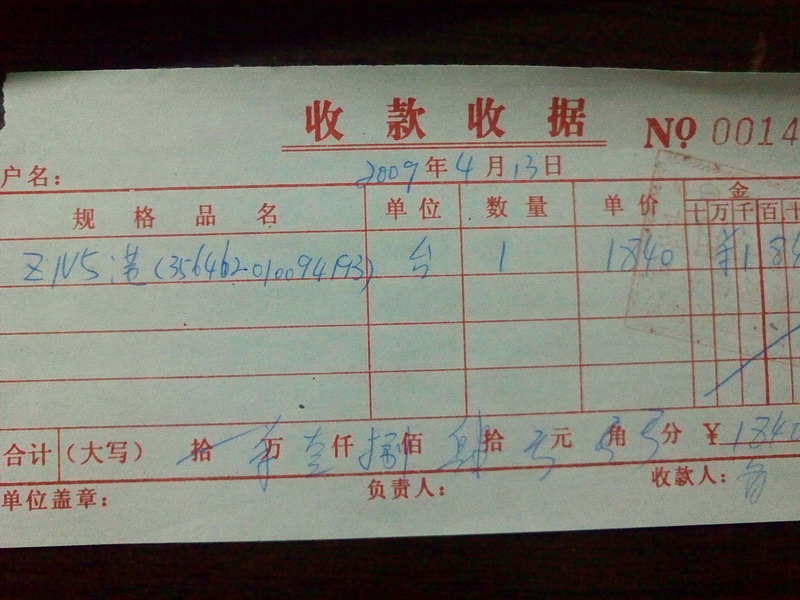 收款收据
No 0014
户名:
2009年4月13日
规格品名 单位 数量 单价 金
十 万 千 百 十
ZN5 港 (356462010094193) 台 1 1840 ¥184
合计 (大写) 拾 万 壹仟 捌佰 肆拾 元 角 分 ¥1840
单位盖章: 负责人: 收款人: